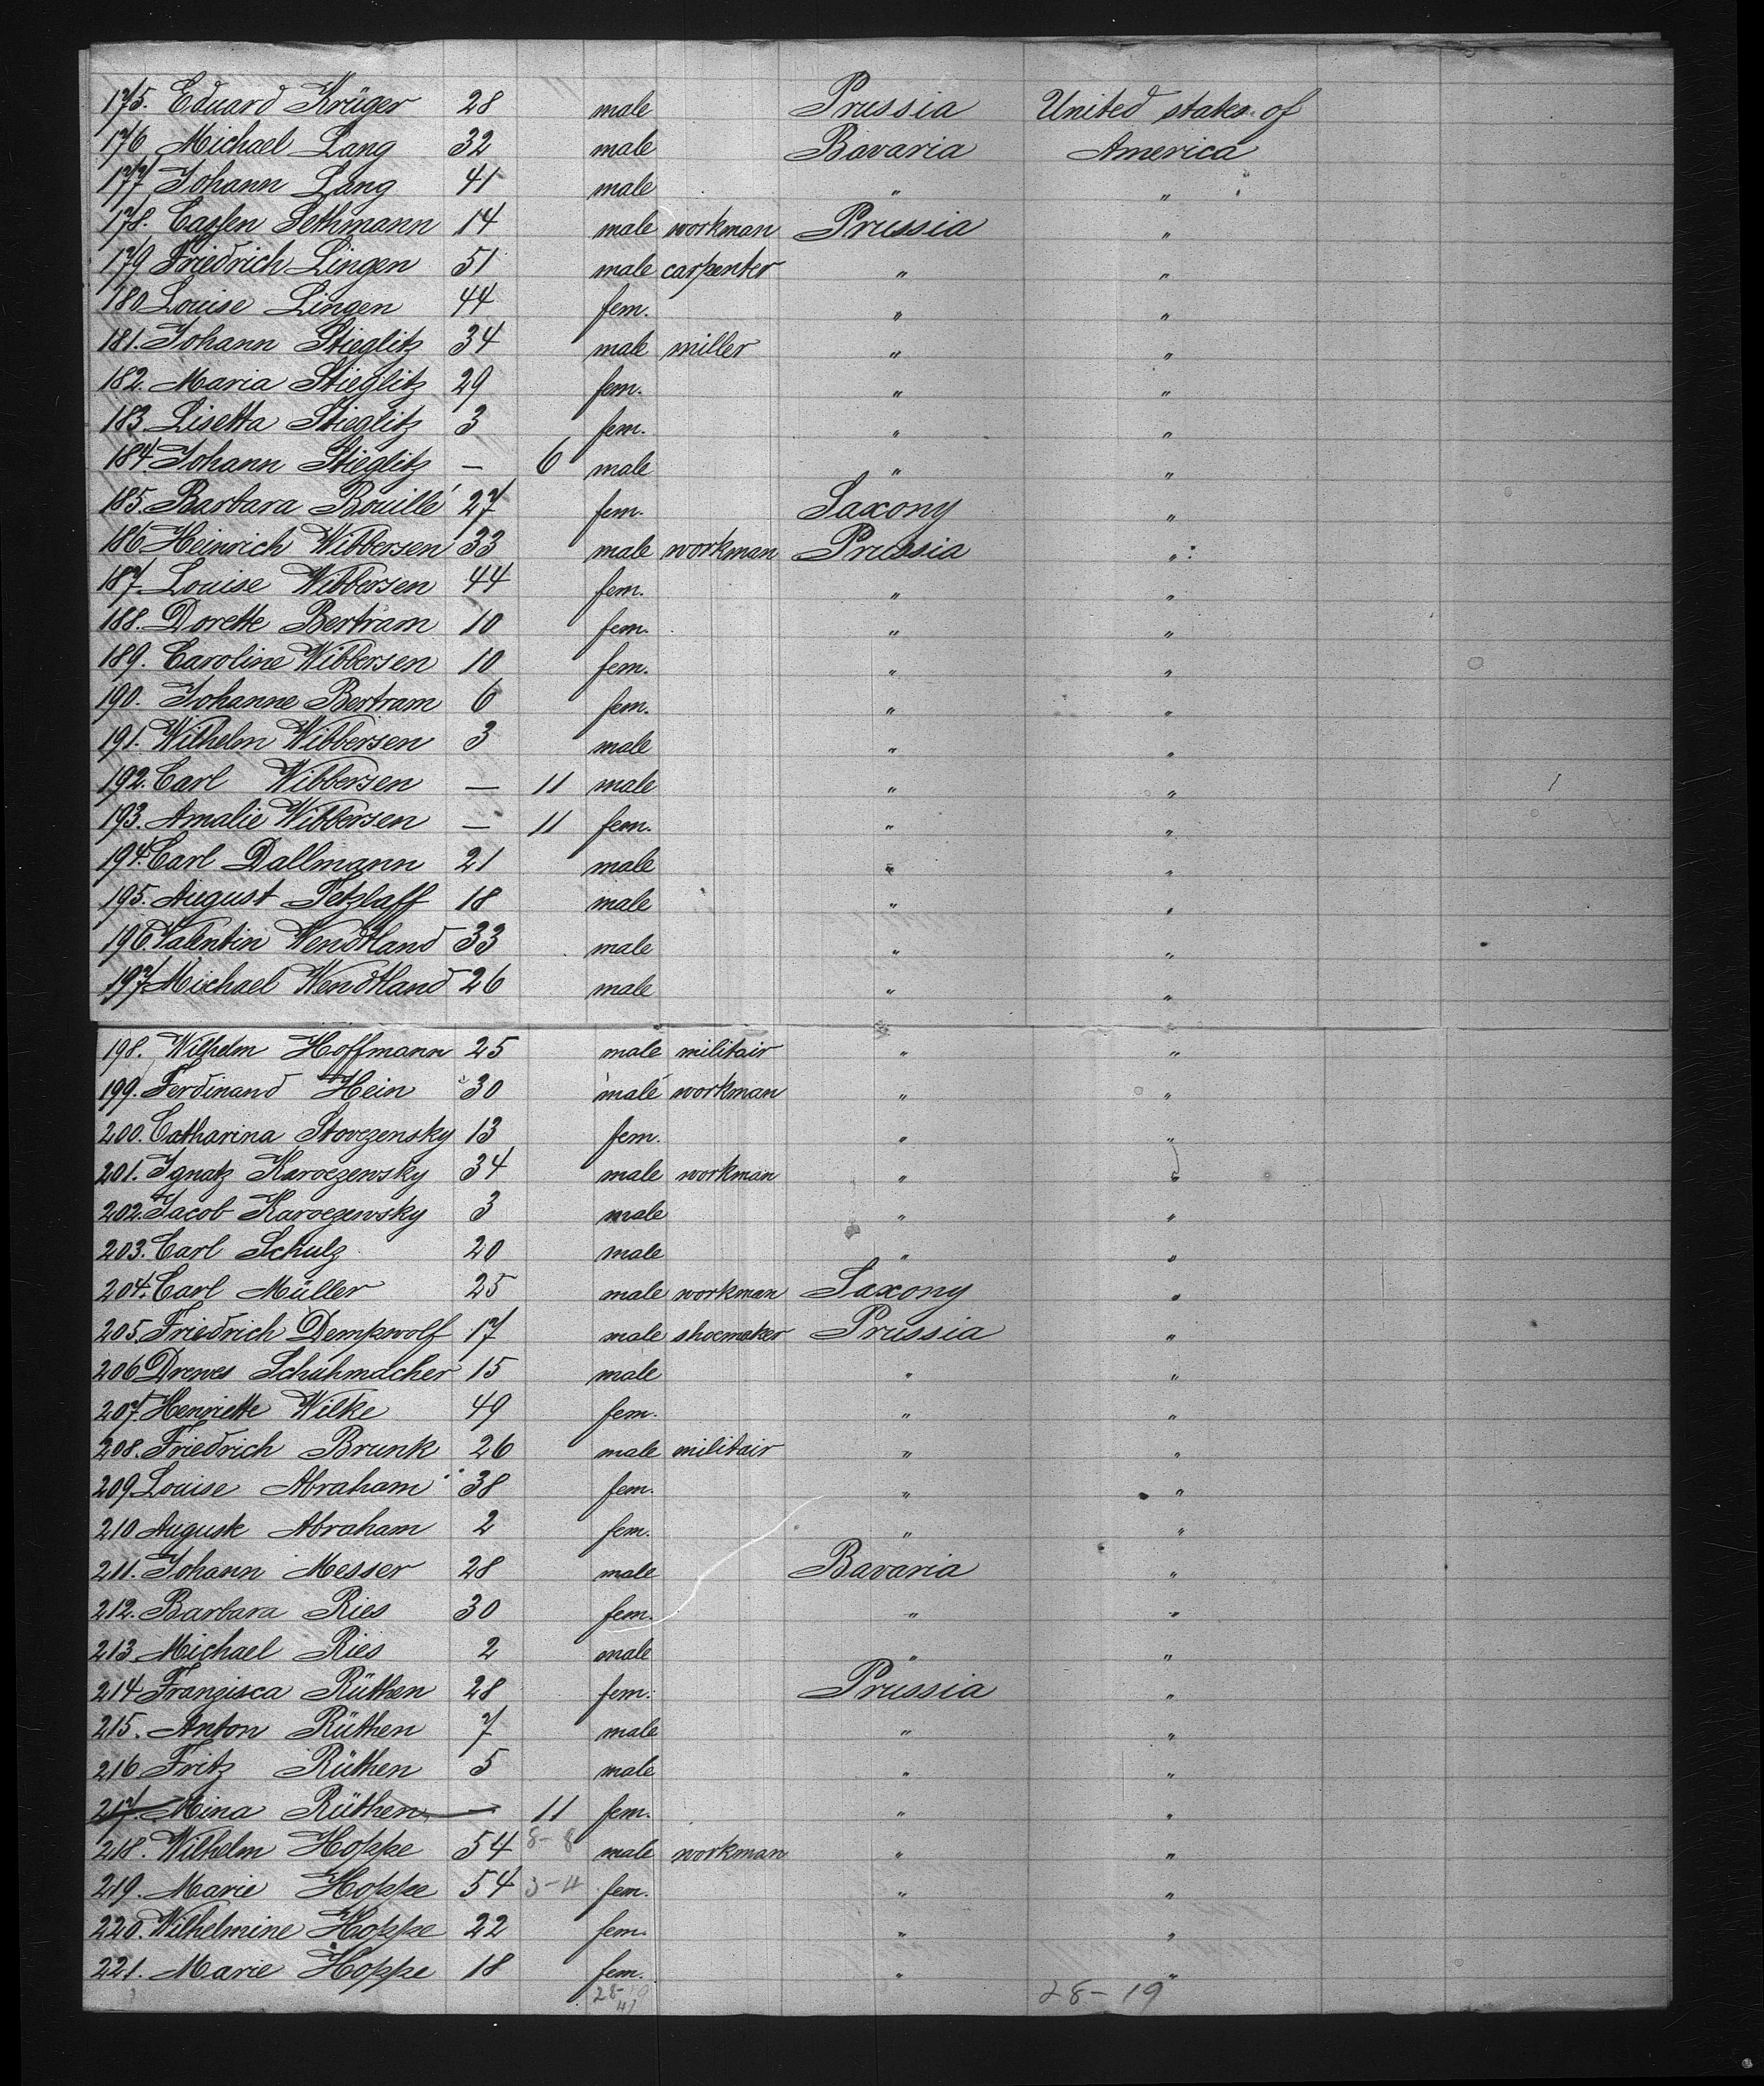 175. Eduard Krüger 28 male Prussia United states of
176 Michael Lang 32 male Bavaria America
177 Johann Lang 41 male " "
178. Carsten Sethmann 14 male workman Prussia "
179 Friedrich Lingen 51 male carpenter " "
180 Louise Lingen 44 fem. " "
181. Johann Stieglitz 34 male miller " "
182. Maria Stieglitz 29 fem. " "
183 Lisetta Stieglitz 3 fem. " "
184. Johann Stieglitz — 6 male " "
185. Barbara Bouillé 27 fem. Saxony "
186 Heinrich Wibbersen 33 male workman Prussia "
187. Louise Wibbersen 44 fem. " "
188. Dorette Bertram 10 fem. " "
189. Caroline Wibbersen 10 fem. " "
190. Johanne Bertram 6 fem. " "
191. Wilhelm Wibbersen 3 male " "
192. Carl Wibbersen — 11 male " "
193. Amalie Wibbersen — 11 fem. " "
194. Carl Dallmann 21 male " "
195. August Tetzlaff 18 male " "
196. Valentin Wendtland 33 male " "
197 Michael Wendtland 26 male " "
198. Wilhelm Hoffmann 25 male militair " "
199. Ferdinand Hein 30 male workman " "
200. Catharina Stovezensky 13 fem. " "
201. Ignatz Karoezewsky 34 male workman " "
202. Jacob Karoezewsky 3 male " "
203. Carl Schulz 20 male " "
204. Carl Müller 25 male workman Saxony "
205. Friedrich Dempwolf 17 male shoemaker Prussia "
206 Drewes Schuhmacher 15 male " "
207. Henriette Wilke 49 fem. " "
208. Friedrich Brunk 26 male militair " "
209 Louise Abraham 38 fem. " "
210 Auguste Abraham 2 fem. " "
211. Johann Messer 28 male Bavaria "
212. Barbara Ries 30 fem. " "
213 Michael Ries 2 male " "
214 Franzisca Rüthen 28 fem. Prussia "
215. Anton Rüthen 7 male " "
216 Fritz Rüthen 5 male " "
217. Mina Rüthen — 11 fem. " "
218. Wilhelm Hoppe 54 8-8 male workman " "
219. Marie Hoppe 54 3-4 fem. " "
220. Wilhelmine Hoppe 22 fem. " "
221. Marie Hoppe 18 fem. " "
28-19